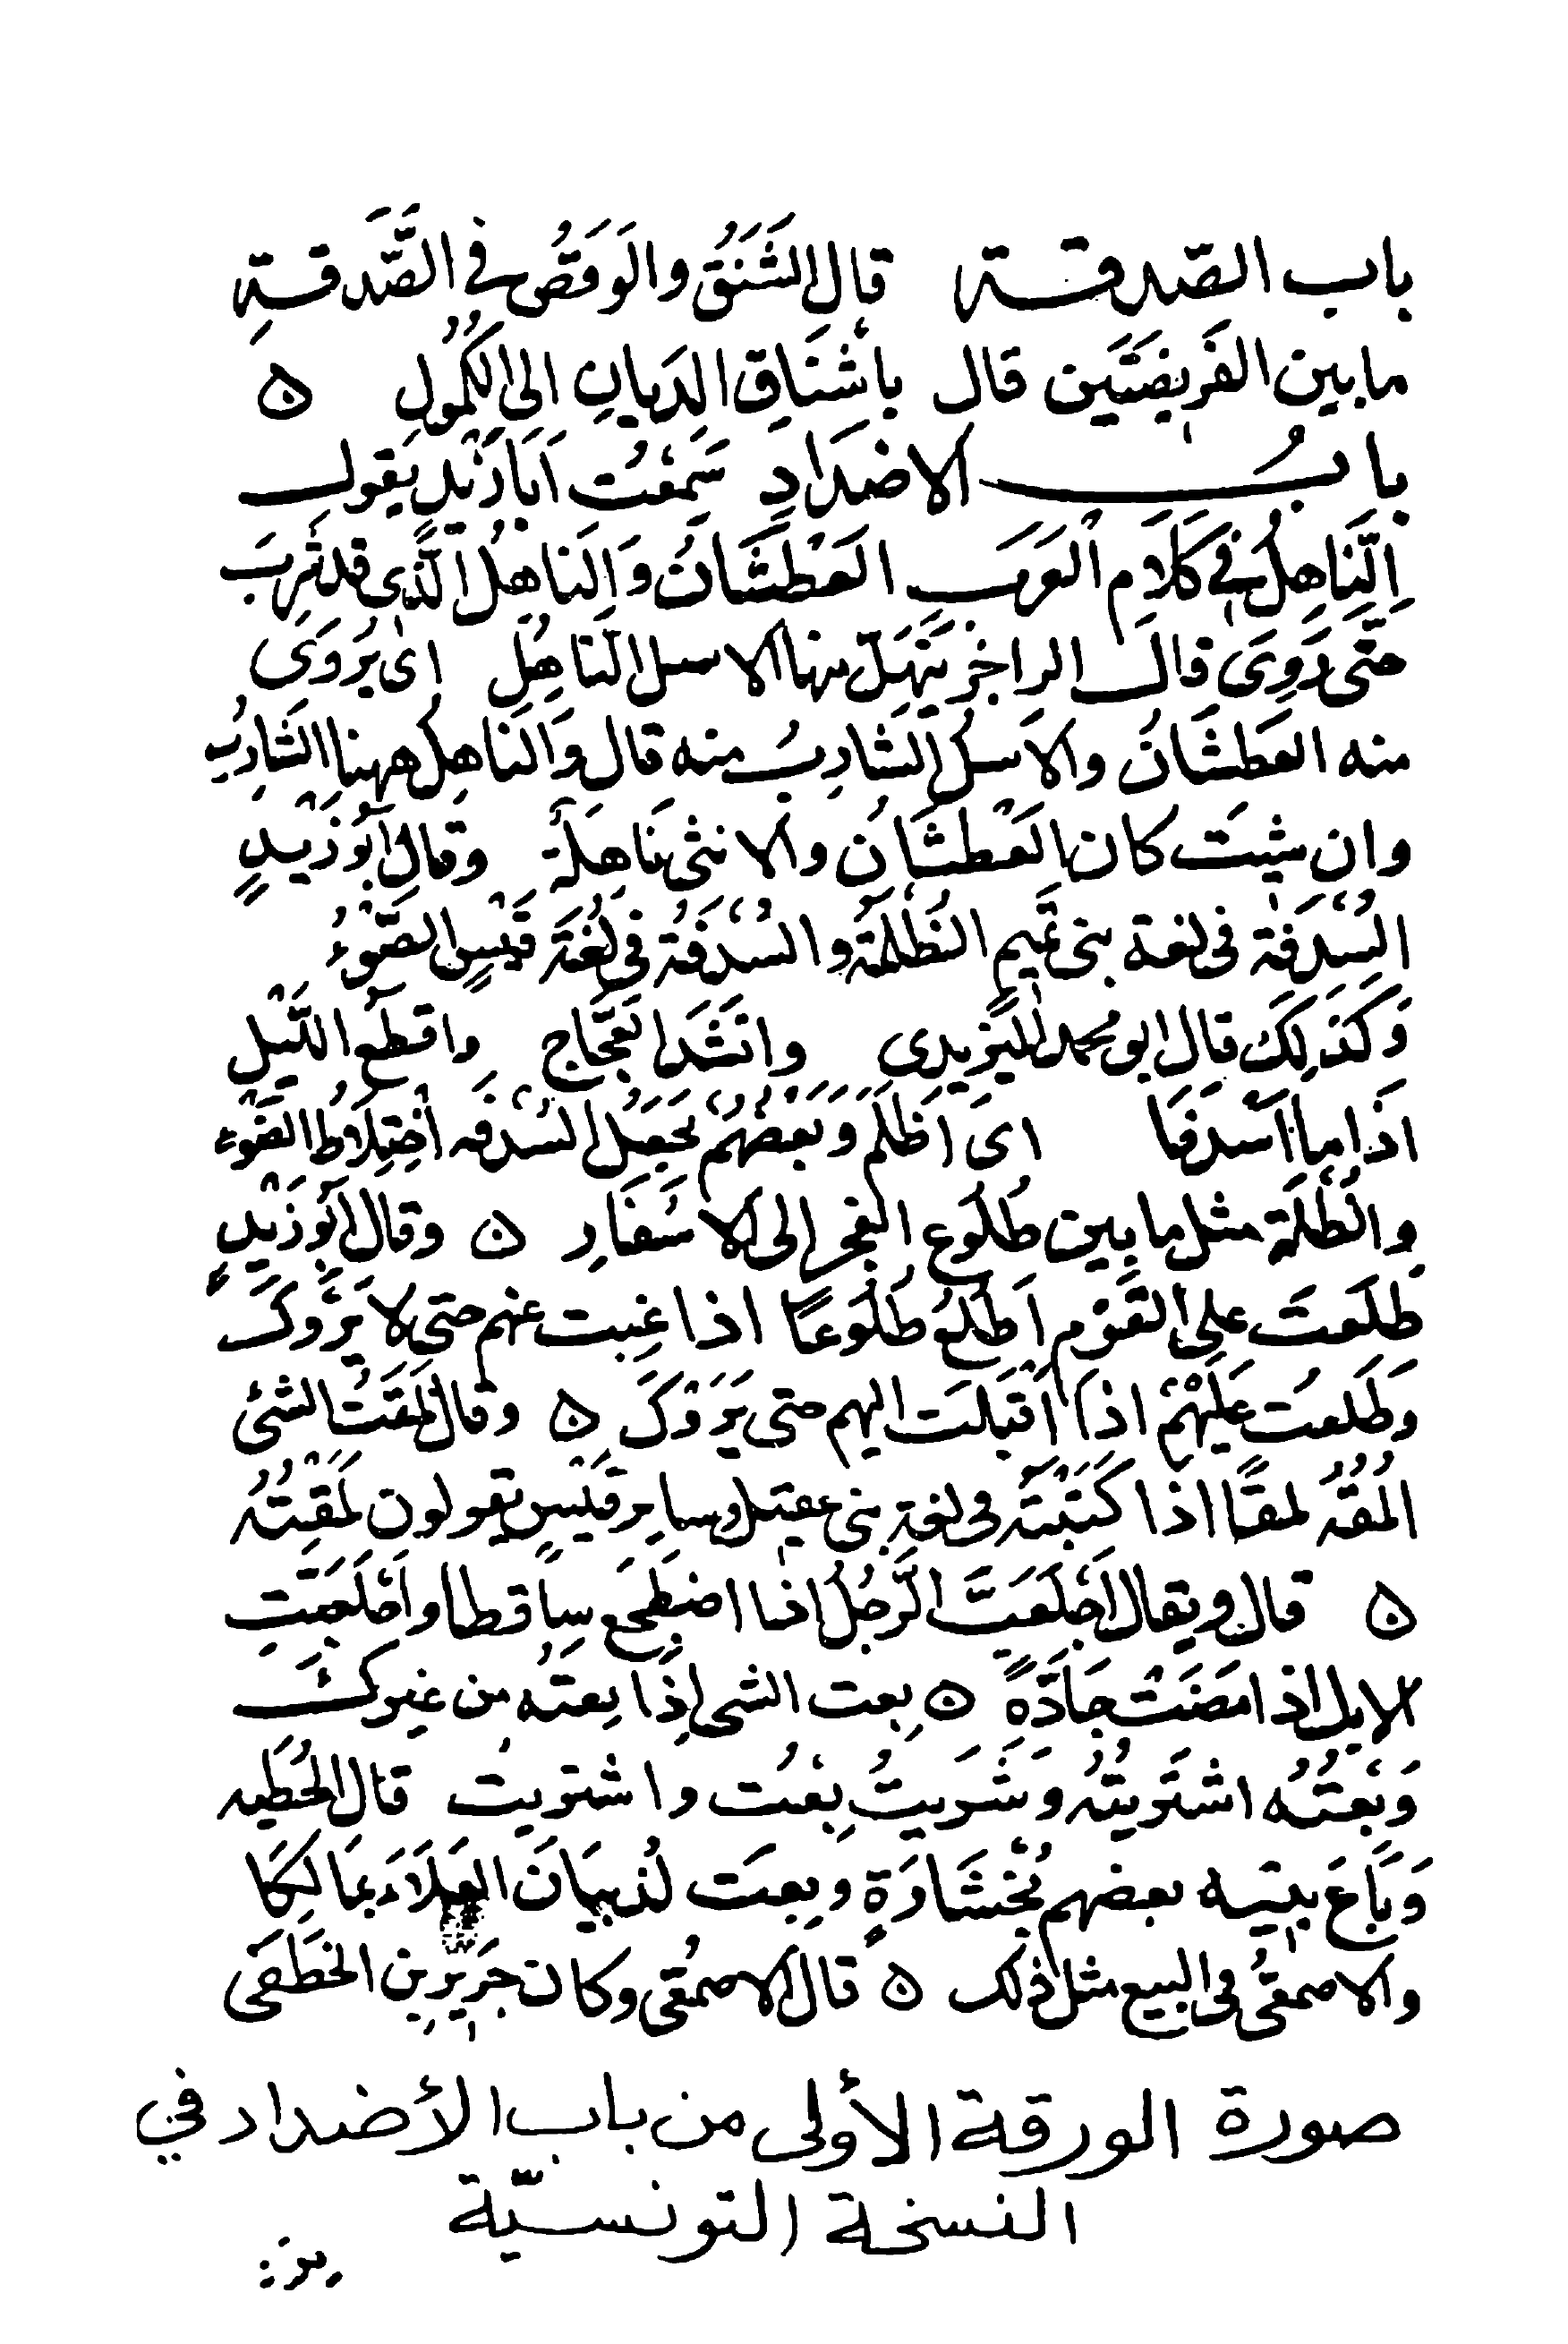 باب الصّدقة قال الشَنَقُ والوَقَصُ في الصَّدَقةِ
ما بين الفَرِيضَتَين قال بأشْنَاقِ الدِيات الى الكُمُولِ ه
بابُ الاضدَادِ سَمِعْتُ أبَا زَيْدٍ يَقول
النَّاهِلُ في كَلَامِ الْعَرَبِ العَطْشَانُ وَالنَاهِلُ الَّذي قد شَرِبَ
حتَّى رَوِىَ قالَ الراجز يَنْهَلُ منها الاسل النَاهِلُ اى يَرْوَى
منه العَطشَانُ والاَسَلُ الشاربُ منه قال وَالنَاهِلُ ههنا الشاربُ
وان شِيتَ كان العَطْشَان والانثى نَاهِلَةٌ وقال أبُو زَيْدٍ
السُدْفَة في لغة بنى تميم الظُلْمَةُ والسُدْفَةُ في لُغَة قَيْسٍ الضَّوْءُ
وَكَذلِكَ قال ابو محمد اليَزيدى وانشَدَ للعَجَّاج واقطَعُ اللَّيْلَ
اذَا ما أَسْدَفَا اىَ اَظْلَمَ وَبَعْضُهُمْ يَجعَلُ السُدْفَه اخْتِلَاطُ الضَّوْء
والظُلْمَة مثل ما بين طُلُوع الفجر الى الاسْفَارِ ه وقال أبُو زَيْدٍ
طَلَعْتَ على القَوْمِ اَطْلُعُ طُلُوعًا اذا غِبت عنهم حتى لا يَرَوْكَ
وَطَلَعتَ عَلَيْهِمْ اذا اَقْبَلتَ اليهم حتى يَرَوْكَ ه وقال لَمَقتُ الشئ
المُقُهُ لمقًا اذا كَتَبْتَهُ في لغة بنى عقيل وساير قَيْسٍ يقولون لَمَقْتُهُ
ه قال ويقال اجْلَعَبَّ الرَّجُلُ اذا اضطَجَع ساقطا واجْلَعَبَّتِ
الابل اذا مَضَتْ جَادَّةً ه بعت الشى إذَا بعتَه من غيرك
وَبِعتُهُ اشتَريتُه وَشَرَيتُ بِعْتُ واشتريتُ قال الحُطَيه
وَبَاعَ بنيه بعضهم بخُشَارَةٍ وبعتَ لذُبيَانَ العَلَاءَ بمَالِكَا
والاصمعيُّ في البيع مثل ذلك ه قال الاصمعُى وكان جَرِير بن الخَطَفَى
صورة الورقة الأولى من باب الأضداد في
النسخة التونسيّة